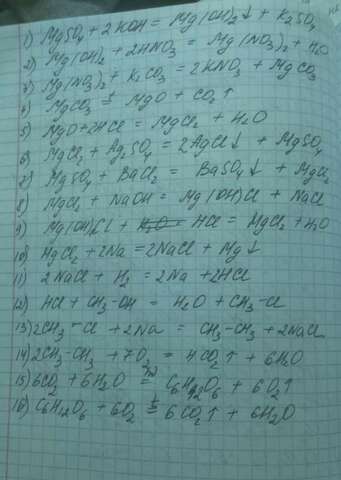 1) MgSO4 + 2KOH = Mg(OH)2↓ + K2SO4
2) Mg(OH)2 + 2HNO3 = Mg(NO3)2 + H2O
3) Mg(NO3)2 + K2CO3 = 2KNO3 + MgCO3
4) MgCO3 =t MgO + CO2↑
5) MgO + 2HCl = MgCl2 + H2O
6) MgCl2 + Ag2SO4 = 2AgCl↓ + MgSO4
7) MgSO4 + BaCl2 = BaSO4↓ + MgCl2
8) MgCl2 + NaOH = Mg(OH)Cl + NaCl
9) Mg(OH)Cl + HCl = MgCl2 + H2O
10) MgCl2 + 2Na = 2NaCl + Mg↓
11) 2NaCl + H2 = 2Na + 2HCl
12) HCl + CH3-OH = H2O + CH3-Cl
13) 2CH3-Cl + 2Na = CH3-CH3 + 2NaCl
14) 2CH3-CH3 + 7O2 = 4CO2↑ + 6H2O
15) 6CO2 + 6H2O =hν C6H12O6 + 6O2↑
16) C6H12O6 + 6O2 =t 6CO2↑ + 6H2O